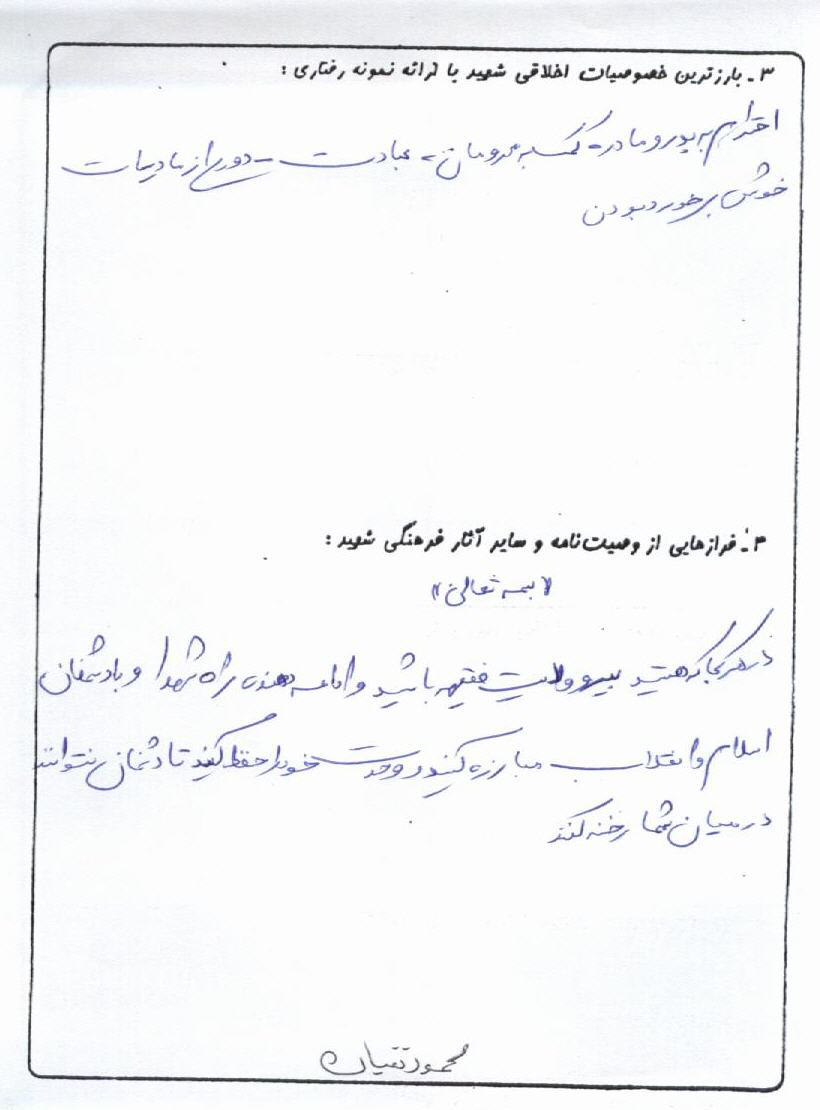 ۳ـ بارزترین خصوصیات اخلاقی شهید با ارائه نمونه رفتاری :
احترام به پدر و مادر - کمک به محرومان - عبادت - دوری از مادیات
خوش برخورد بودن
۴ـ فرازهایی از وصیت‌نامه و سایر آثار فرهنگی شهید :
«بسمه تعالی»
در هر کجا که هستید پیرو ولایت فقیه باشید و ادامه دهنده راه شهدا و با دشمنان
اسلام و انقلاب مبارزه کنید و وحدت خود را حفظ کنید تا دشمنان نتوانند
در میان شما رخنه کنند
محمود تقیان